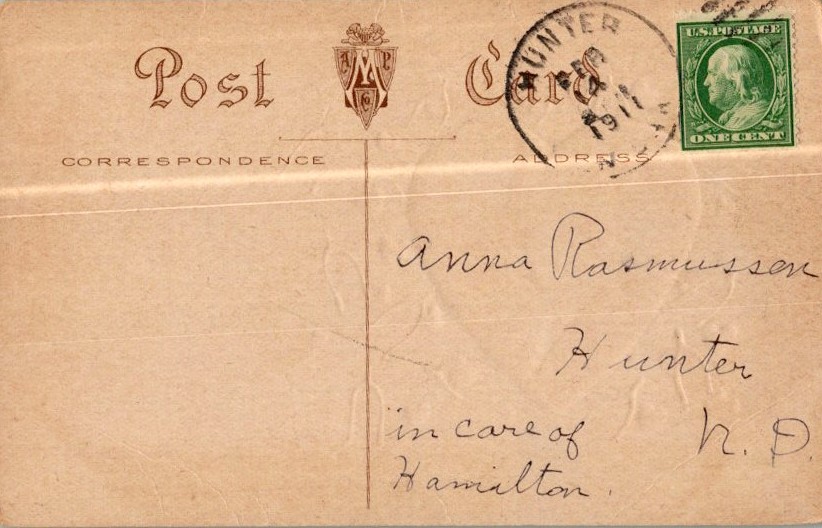 Post Card
A M P
Co
HUNTER
FEB
14
1911
N. DAK.
U.S. POSTAGE
ONE CENT
CORRESPONDENCE
ADDRESS
Anna Rasmussen
Hunter
in care of N. D.
Hamilton.